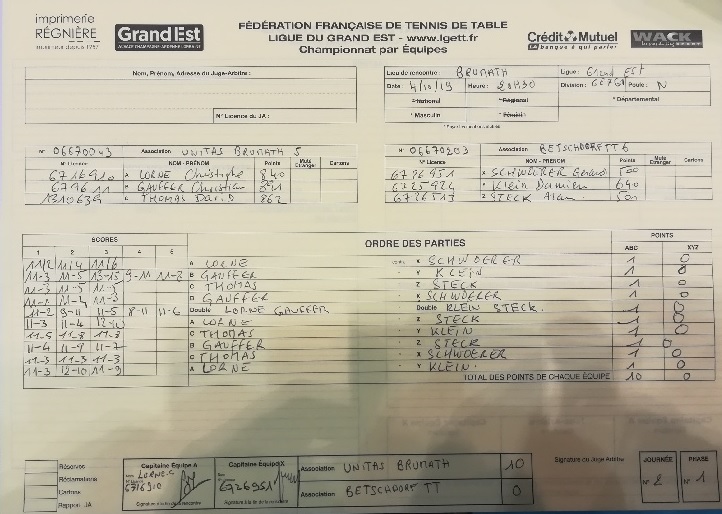 imprimerie
RÉGNIÈRE
Grand Est
ALSACE CHAMPAGNE-ARDENNE LORRAINE
FÉDÉRATION FRANÇAISE DE TENNIS DE TABLE
LIGUE DU GRAND EST - www.lgett.fr
Championnat par Équipes
Crédit Mutuel
La banque à qui parler
WACK
Nom, Prénom, Adresse du Juge-Arbitre :
N° Licence du JA :
Lieu de rencontre : BRUMATH Ligue : Grand EST
Date 4/10/19 Heure : 20H30 Division : Poule : N
* National * Régional * Départemental
* Masculin * Féminin
N° 06670043 Association UNITAS BRUMATH 5
N° Licence NOM - PRÉNOM Points Muté Etranger Cartons
6716910 A LORNE Christophe 840
B GAUFFER Christian 891
C THOMAS David 862
N° 06670203 Association BETSCHDORF TT 6
N° Licence NOM - PRÉNOM Points Muté Etranger Cartons
6726951 X SCHWOERER Gérard 500
6725924 Y Klein Damien 640
6726513 Z STECK Alain 501
SCORES ORDRE DES PARTIES POINTS
1 2 3 4 5 ABC XYZ
11/2 11/4 11/6 A LORNE contre X SCHWOERER 1 0
11-3 11-5 13-15 9-11 11-2 B GAUFFER - Y KLEIN 1 0
11-3 11-5 C THOMAS - Z STECK 1 0
11-4 11-3 B GAUFFER - X SCHWOERER 1 0
11-2 9-11 11-5 8-11 11-6 Double LORNE GAUFFER - Double KLEIN STECK 1 0
11-3 11-4 12-10 A LORNE - Z STECK 1 0
11-5 11-8 11-8 C THOMAS - Y KLEIN 1 0
11-4 11-9 11-7 B GAUFFER - Z STECK 1 0
11-3 11-3 11-3 C THOMAS - X SCHWOERER 1 0
11-3 12-10 11-9 A LORNE - Y KLEIN 1 0
TOTAL DES POINTS DE CHAQUE ÉQUIPE 10 0
Réserves
Réclamations
Cartons
Rapport JA
Capitaine Équipe A
LORNE.C
6716910
Capitaine Équipe X
6726951
Association UNITAS BRUMATH 10
Association BETSCHDORF TT 0
Signature du Juge Arbitre
JOURNÉE
N° 2
PHASE
N° 1